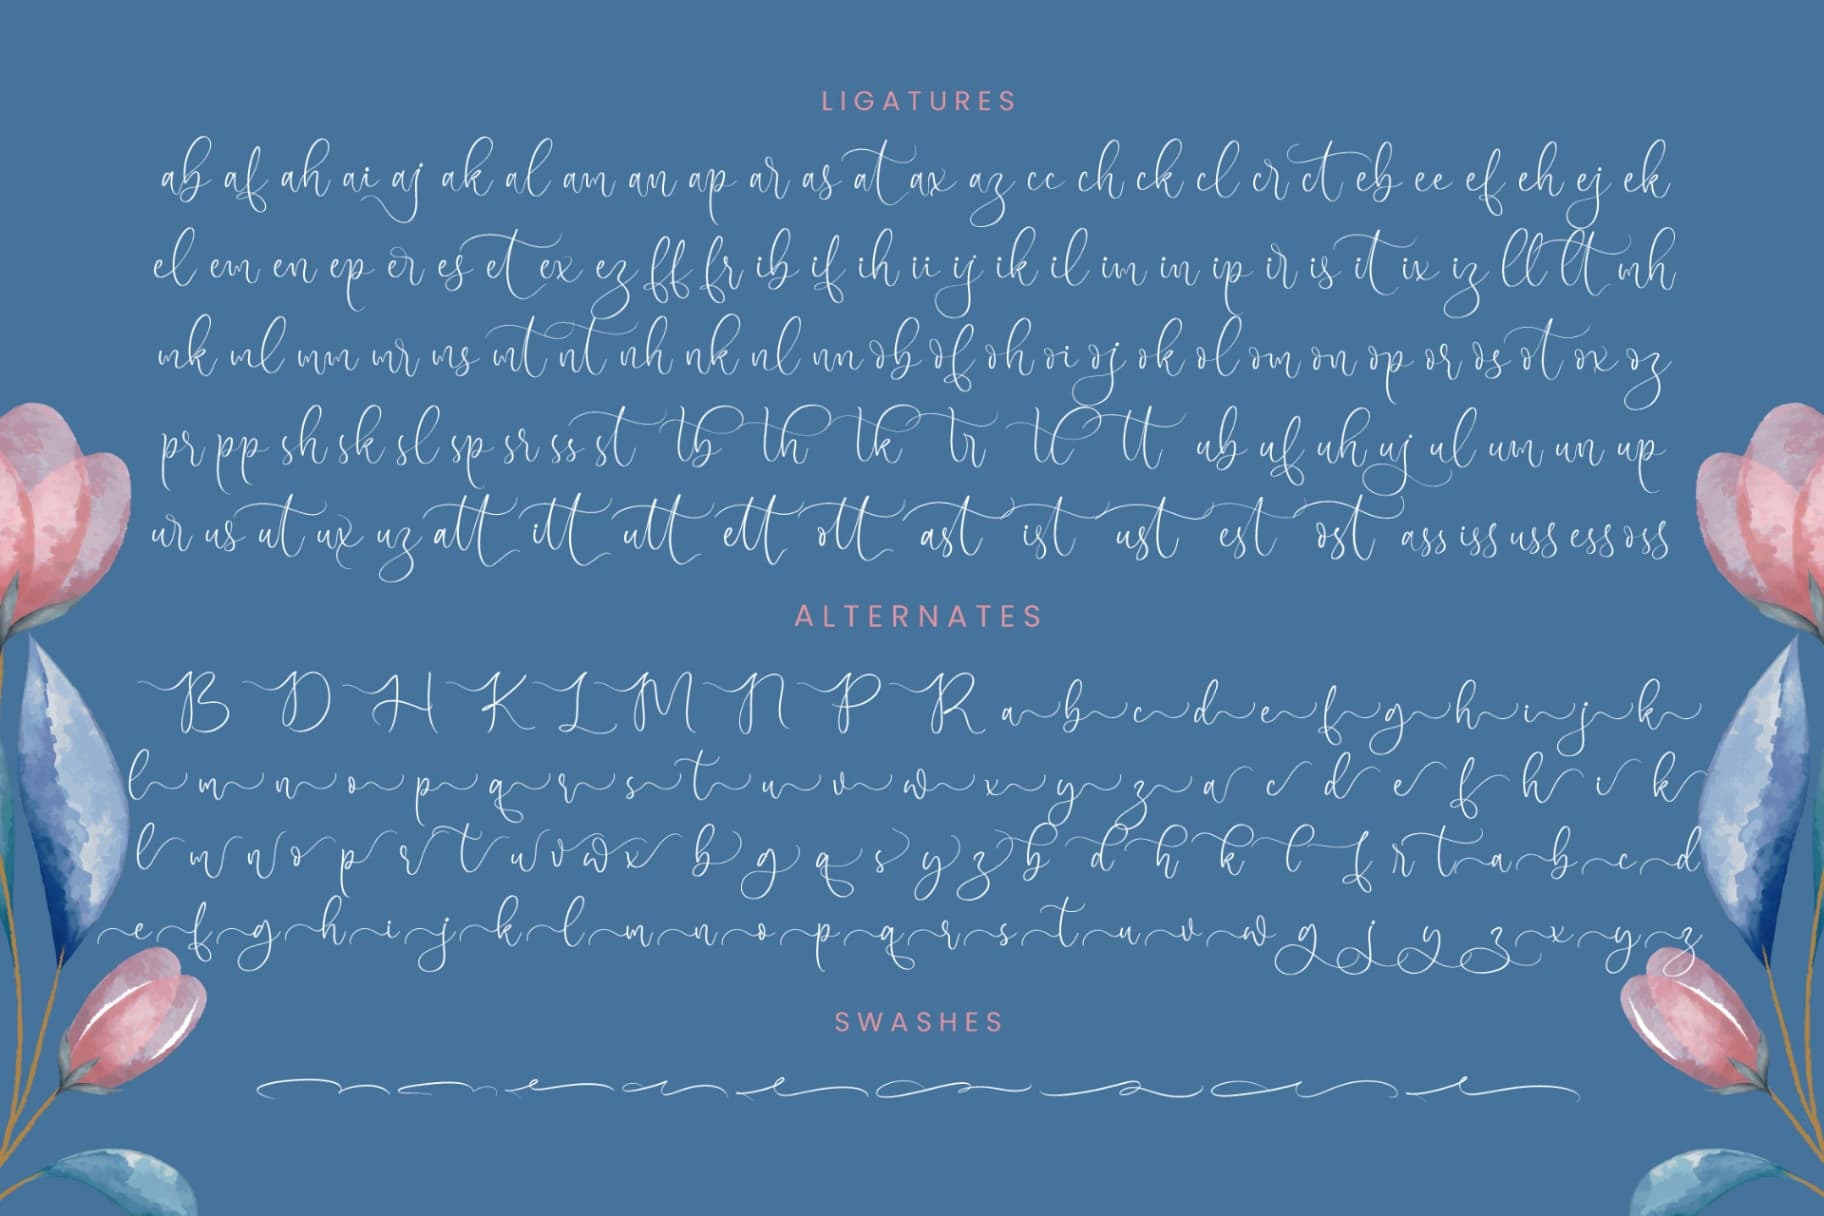 LIGATURES
ab af ah ai aj ak al am an ap ar as at ax az cc ch ck cl cr ct eb ee ef eh ej ek
el em en ep er es et ex ez ff fr ib if ih ii ij ik il im in ip ir is it ix iz ll lt mh
mk ml mm mr ms mt nt nh nk nl nn ob of oh oi oj ok ol om on op or os ot ox oz
pr pp sh sk sl sp sr ss st tb th tk tr tl tt ub uf uh uj ul um un up
ur us ut ux uz att itt utt ett ott ast ist ust est ost ass iss uss ess oss
ALTERNATES
B D H K L M N P R a b c d e f g h i j k
l m n o p q r s t u v w x y z a c d e f h i k
l m n o p r t u v w x b g q s y z b d h k l f r t a b c d
e f g h i j k l m n o p q r s t u v w g j y z x y z
SWASHES